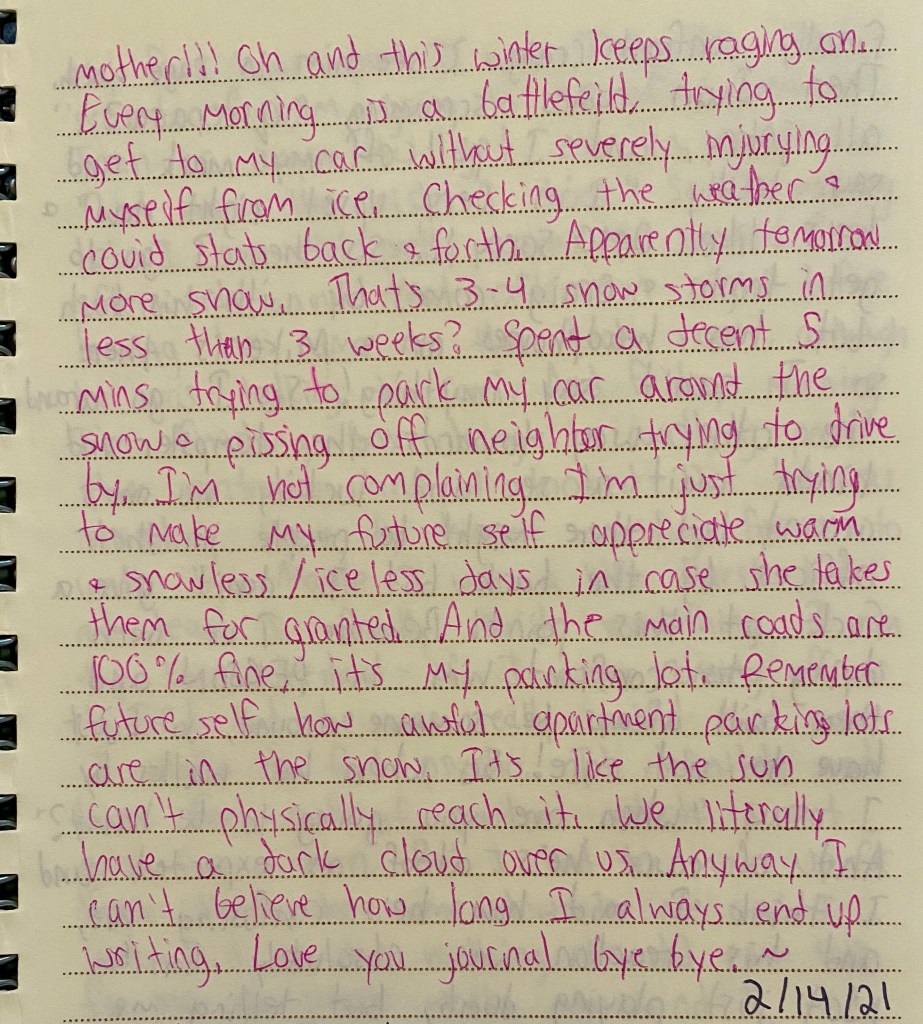 mother!!! Oh and this winter keeps raging on.
Every morning is a battlefeild, trying to
get to my car without severely injurying
myself from ice. Checking the weather &
covid stats back & forth. Apparently tomorrow
more snow. Thats 3-4 snow storms in
less than 3 weeks? Spent a decent 5
mins trying to park my car around the
snow & pissing off neighbor trying to drive
by. I'm not complaining I'm just trying
to make my future self appreciate warm
& snowless / iceless days in case she takes
them for granted. And the main roads are
100% fine, it's my parking lot. Remember
future self how awful apartment parking lots
are in the snow. It's like the sun
can't physically reach it. We literally
have a dark cloud over us. Anyway I
can't believe how long I always end up
writing. Love you journal bye bye. ~
2/14/21